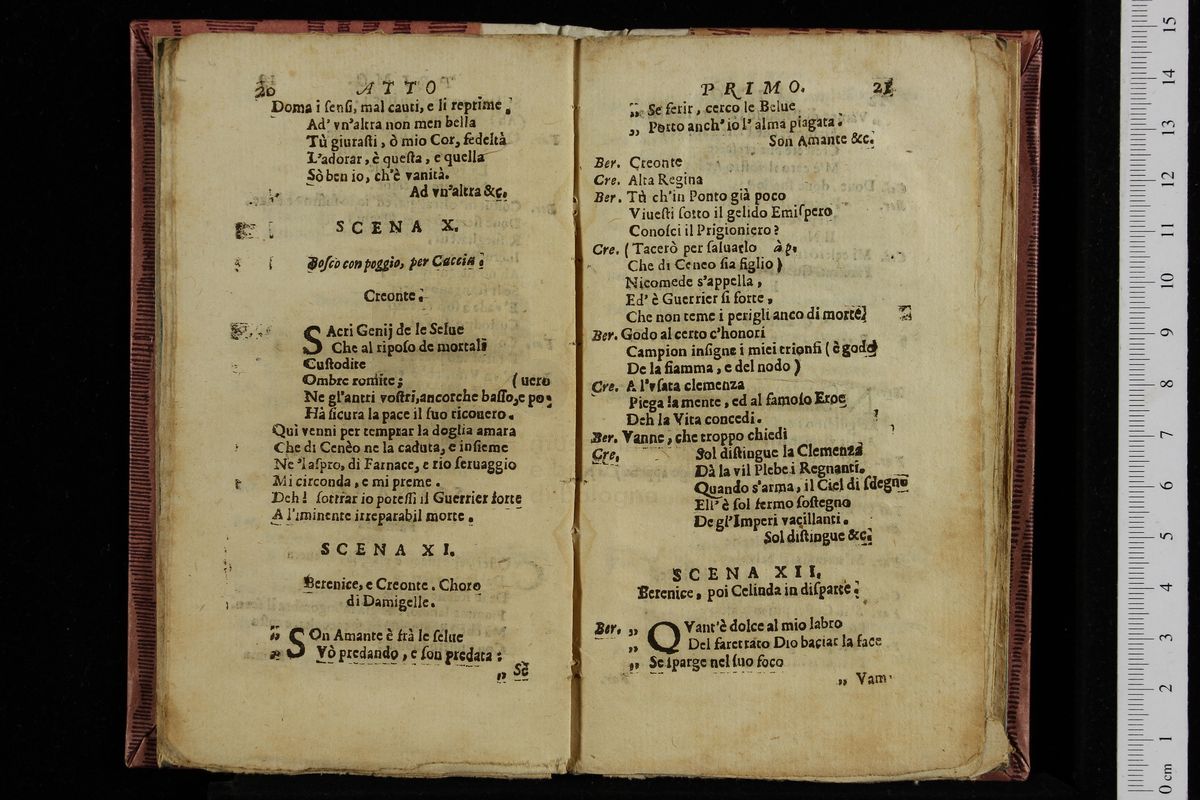 20 ATTO
Doma i ſenſi, mal cauti, e li reprime.
Ad' vn'altra non men bella
Tù giuraſti, ò mio Cor, fedeltà
L'adorar, è queſta, e quella
Sò ben io, ch'è vanità.
Ad vn'altra &c.
SCENA X.
Boſco con poggio, per Caccia.
Creonte.
SAcri Genij de le Selue
Che al ripoſo de mortali
Cuſtodite
Ombre romite; (uero
Ne gl'antri voſtri, ancorche baſſo, e po-
Hà ſicura la pace il ſuo ricouero.
Quì venni per temprar la doglia amara
Che di Cenèo ne la caduta, e inſieme
Ne 'l aſpro, di Farnace, e rio ſeruaggio
Mi circonda, e mi preme.
Deh! ſottrar io poteſſi il Guerrier forte
A l'iminente irreparabil morte.
SCENA XI.
Berenice, e Creonte. Choro
di Damigelle.
„ SOn Amante è frà le ſelue
„ Vò predando, e ſon predata:
„ Se
PRIMO. 21
„ Se ferir, cerco le Belue
„ Porto anch' io l' alma piagata.
Son Amante &c.
Ber. Creonte
Cre. Alta Regina
Ber. Tù ch'in Ponto già poco
Viueſti ſotto il gelido Emiſpero
Conoſci il Prigioniero?
Cre. (Tacerò per ſaluarlo à p.
Che di Ceneo ſia figlio)
Nicomede s'appella,
Ed' è Guerrier ſi forte,
Che non teme i perigli anco di morte.
Ber. Godo al certo c'honori
Campion inſigne i miei trionfi (è godo
De la fiamma, e del nodo)
Cre. A l'vſata clemenza
Piega la mente, ed al famoſo Eroe
Deh la Vita concedi.
Ber. Vanne, che troppo chiedi
Cre. Sol diſtingue la Clemenza
Dà la vil Plebe i Regnanti.
Quando s'arma, il Ciel di ſdegno
Ell' è ſol fermo ſoſtegno
De gl'Imperi vacillanti.
Sol diſtingue &c.
SCENA XII.
Berenice, poi Celinda in diſparte.
Ber. „ QVant'è dolce al mio labro
„ Del faretrato Dio baciar la face
„ Se ſparge nel ſuo foco
„ Vam-
15
14
13
12
11
10
9
8
7
6
5
4
3
2
1
0 cm